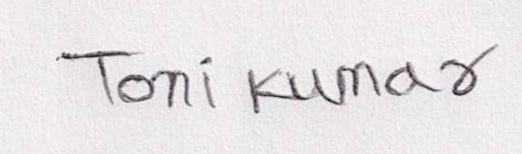 Toni Kumar